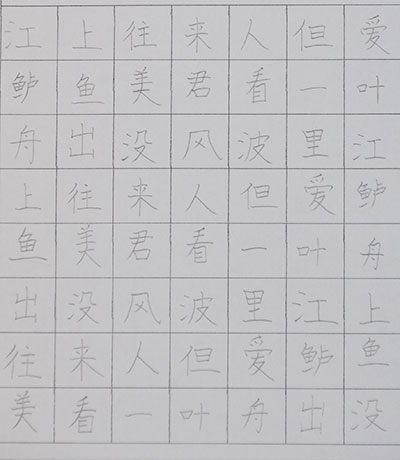 江上往来人但爱
鲈鱼美君看一叶
舟出没风波里江
上往来人但爱鲈
鱼美君看一叶舟
出没风波里江上
往来人但爱鲈鱼
美看一叶舟出没